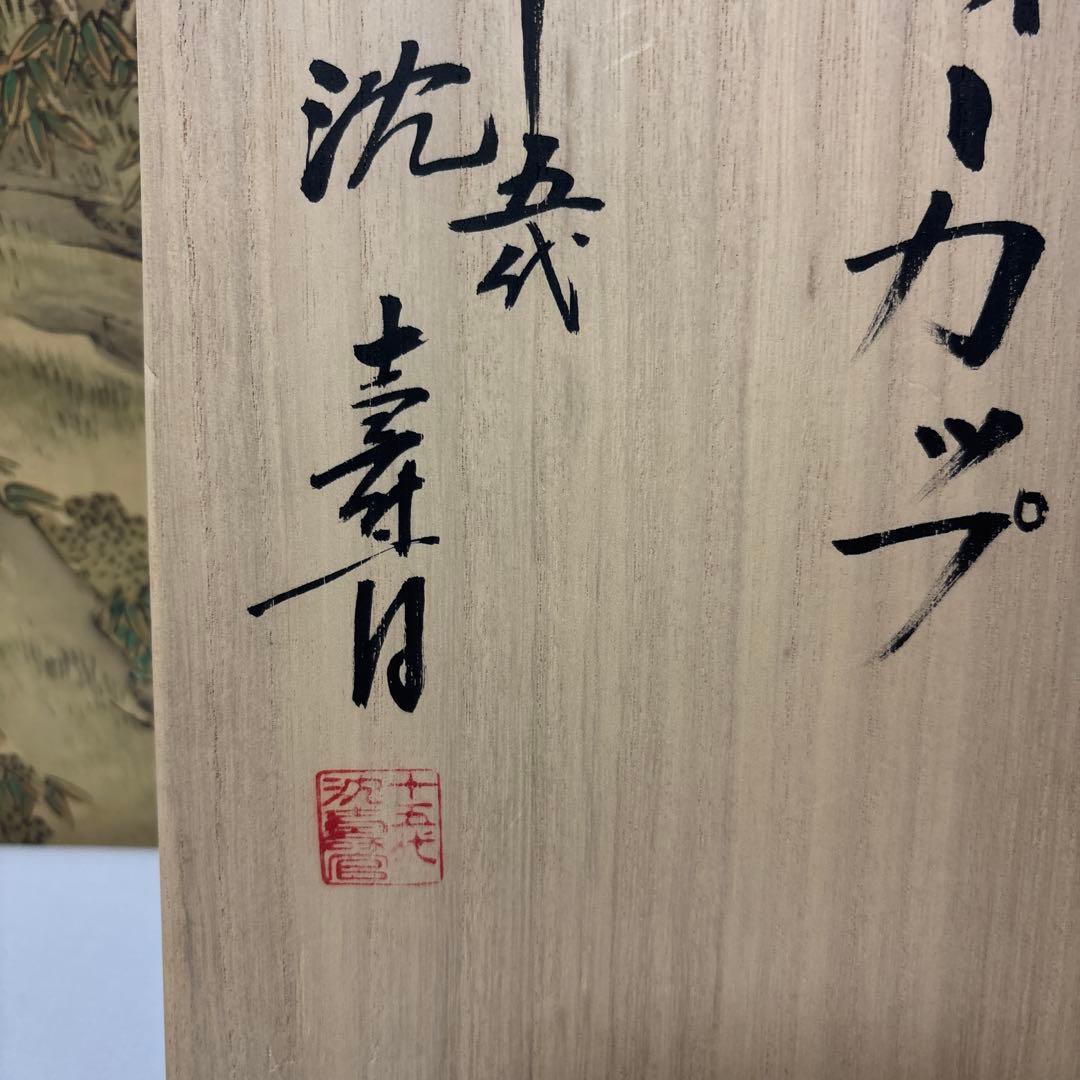 ーカップ
五代
沈壽官
十五代
沈壽官